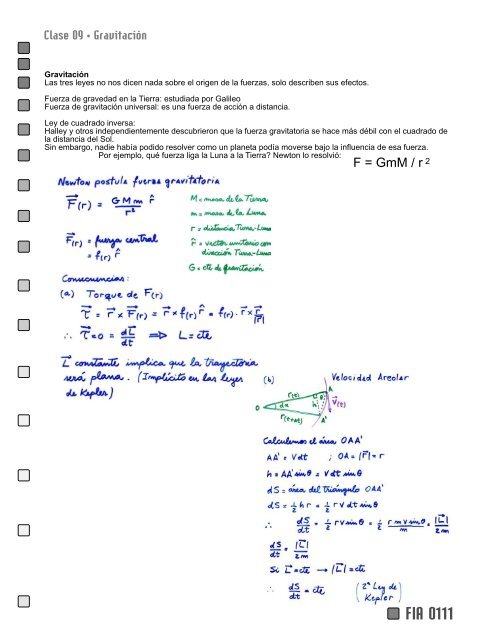 Clase 09 • Gravitación
Gravitación
Las tres leyes no nos dicen nada sobre el origen de la fuerzas, solo describen sus efectos.
Fuerza de gravedad en la Tierra: estudiada por Galileo
Fuerza de gravitación universal: es una fuerza de acción a distancia.
Ley de cuadrado inversa:
Halley y otros independientemente descubrieron que la fuerza gravitatoria se hace más débil con el cuadrado de
la distancia del Sol.
Sin embargo, nadie había podido resolver como un planeta podía moverse bajo la influencia de esa fuerza.
Por ejemplo, qué fuerza liga la Luna a la Tierra? Newton lo resolvió:
F = GmM / r²
Newton postula fuerza gravitatoria
F⃗(r) = GMm/r² r̂
M = masa de la Tierra
m = masa de la Luna
r = distancia Tierra-Luna
r̂ = vector unitario con
dirección Tierra-Luna
G = cte de gravitación
F⃗(r) = fuerza central
= f(r) r̂
Consecuencias:
(a) Torque de F(r)
τ⃗ = r⃗ × F⃗(r) = r⃗ × f(r) r̂ = f(r)· r⃗ × r⃗/|r⃗|
∴ τ⃗ = 0 = dL⃗/dt ⇒ L = cte
L⃗ constante implica que la trayectoria
será plana. (Implícito en las leyes
de Kepler)
(b) Velocidad Areolar
O
r(t)
dα
h
θ
A
V⃗(t)
r(t+dt)
A'
Calculemos el área OAA'
AA' = V dt ; OA = |r⃗| = r
h = AA' sinθ = V dt sinθ
dS = área del triángulo OAA'
dS = ½ h r = ½ r V dt sinθ
∴ dS/dt = ½ r V sinθ = ½ r m V sinθ/m = |L⃗|/2m
dS/dt = |L⃗|/2m
Si L⃗ = cte → |L⃗| = cte
∴ dS/dt = cte (2ª Ley de Kepler)
FIA 0111